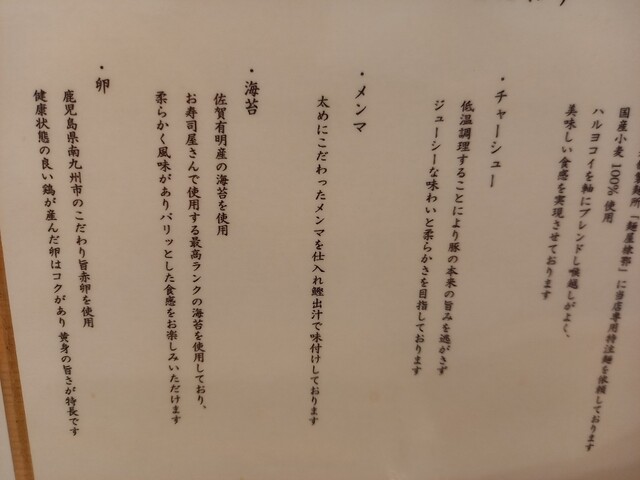 に当店専用特注麺を依頼しております
国産小麦100%使用
ハルヨコイを軸にブレンドし喉越しがよく、
美味しい食感を実現させております
・チャーシュー
低温調理することにより豚の本来の旨みを逃がさず
ジューシーな味わいと柔らかさを目指しております
・メンマ
太めにこだわったメンマを仕入れ鰹出汁で味付けしております
・海苔
佐賀有明産の海苔を使用
お寿司屋さんで使用する最高ランクの海苔を使用しており、
柔らかく風味がありパリッとした食感をお楽しみいただけます
・卵
鹿児島県南九州市のこだわり旨赤卵を使用
健康状態の良い鶏が産んだ卵はコクがあり黄身の旨さが特長です